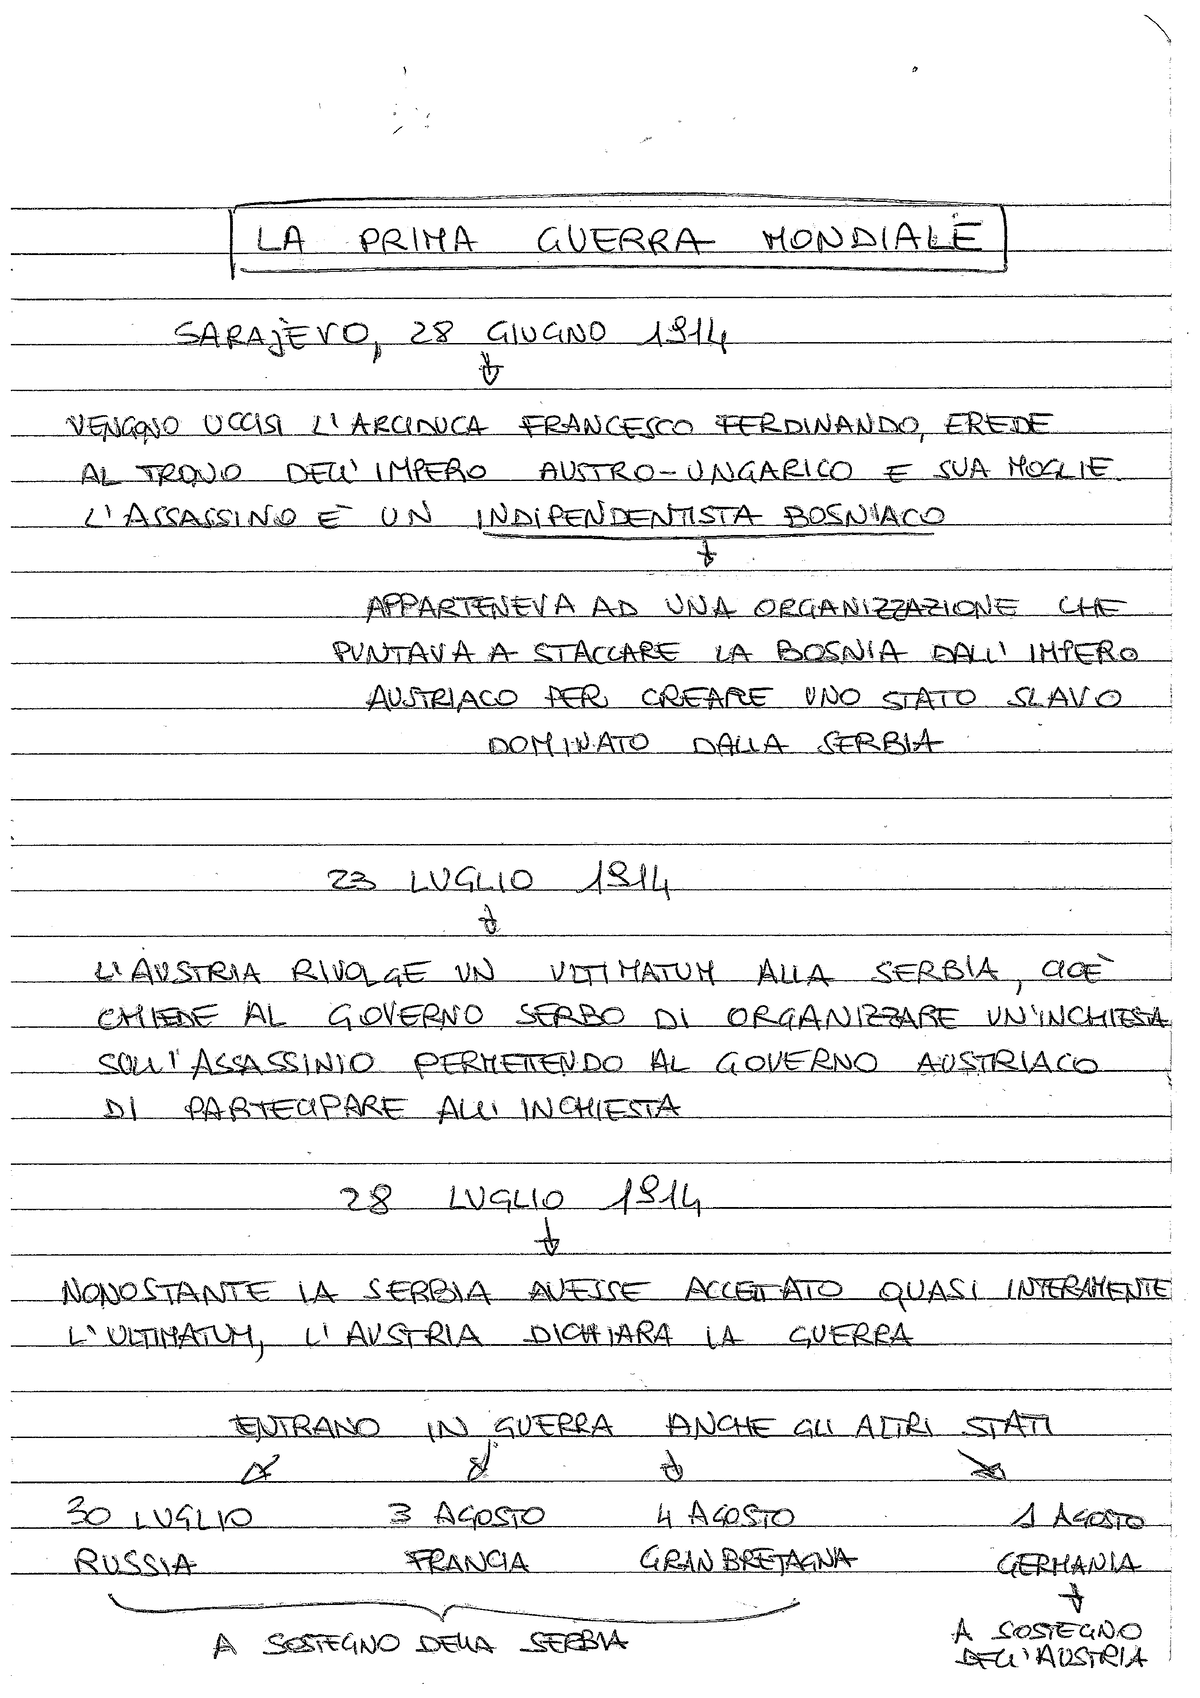 LA PRIMA GUERRA MONDIALE
SARAJEVO, 28 GIUGNO 1914
VENGONO UCCISI L'ARCIDUCA FRANCESCO FERDINANDO, EREDE
AL TRONO DELL'IMPERO AUSTRO-UNGARICO E SUA MOGLIE.
L'ASSASSINO È UN INDIPENDENTISTA BOSNIACO
APPARTENEVA AD UNA ORGANIZZAZIONE CHE
PUNTAVA A STACCARE LA BOSNIA DALL'IMPERO
AUSTRIACO PER CREARE UNO STATO SLAVO
DOMINATO DALLA SERBIA
23 LUGLIO 1914
L'AUSTRIA RIVOLGE UN ULTIMATUM ALLA SERBIA, CIOÈ
CHIEDE AL GOVERNO SERBO DI ORGANIZZARE UN'INCHIESTA
SULL'ASSASSINIO PERMETTENDO AL GOVERNO AUSTRIACO
DI PARTECIPARE ALL'INCHIESTA
28 LUGLIO 1914
NONOSTANTE LA SERBIA AVESSE ACCETTATO QUASI INTERAMENTE
L'ULTIMATUM, L'AUSTRIA DICHIARA LA GUERRA
ENTRANO IN GUERRA ANCHE GLI ALTRI STATI
30 LUGLIO 3 AGOSTO 4 AGOSTO 1 AGOSTO
RUSSIA FRANCIA GRAN BRETAGNA GERMANIA
A SOSTEGNO DELLA SERBIA A SOSTEGNO
DELL'AUSTRIA